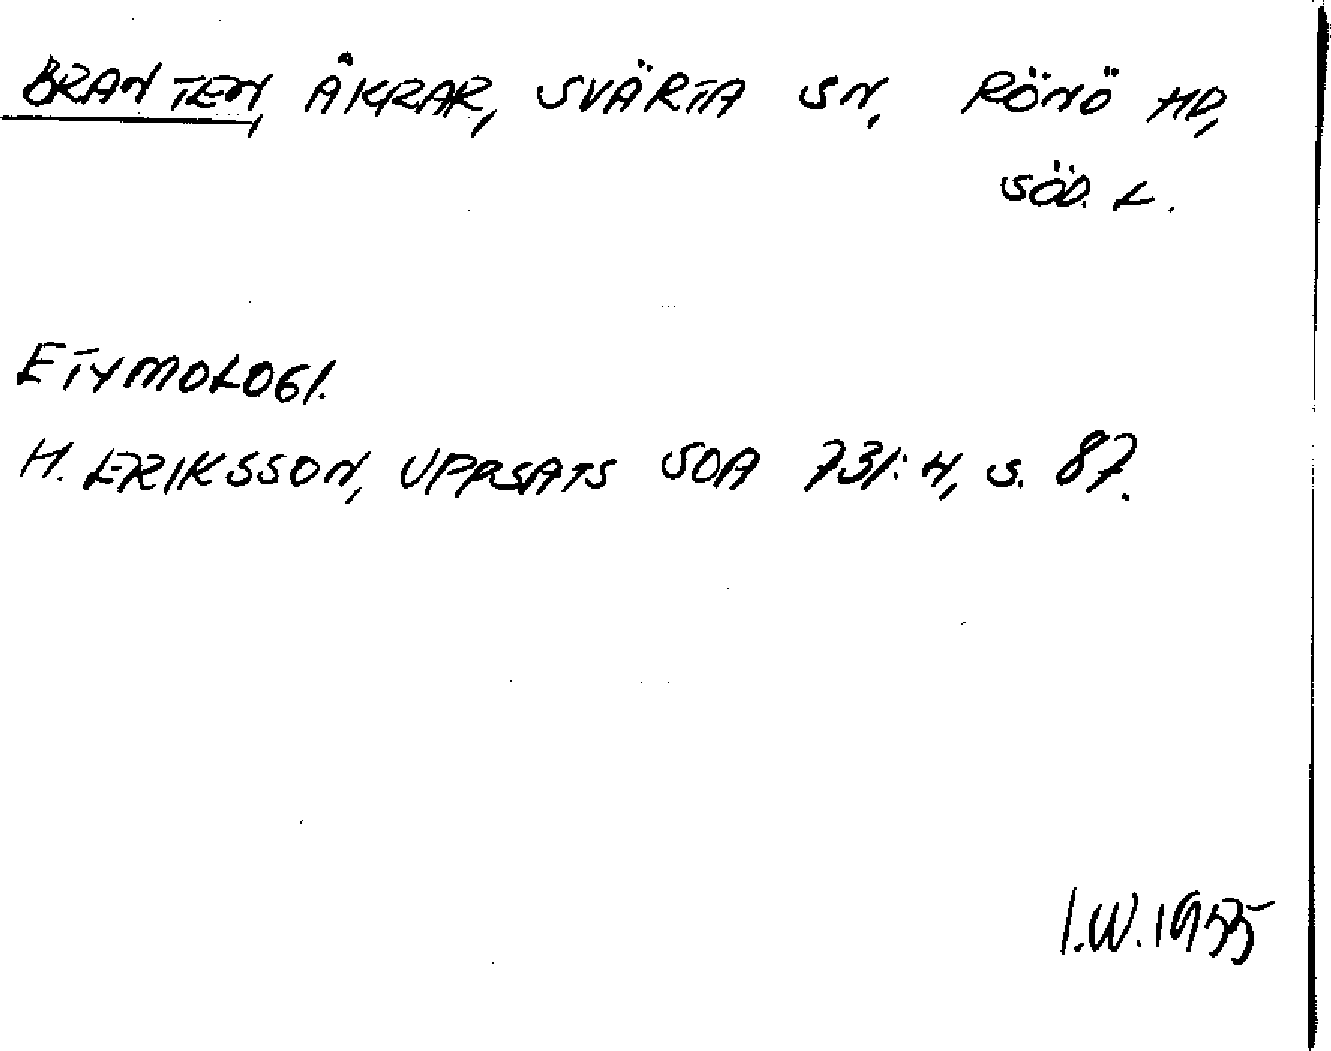 BRANTEN, ÅKRAR, SVÄRTA SN, RÖNÖ HD,
SÖD. L.
ETYMOLOGI.
H. ERIKSSON, UPPSATS SOA 731:4, S. 87.
I.W. 1955